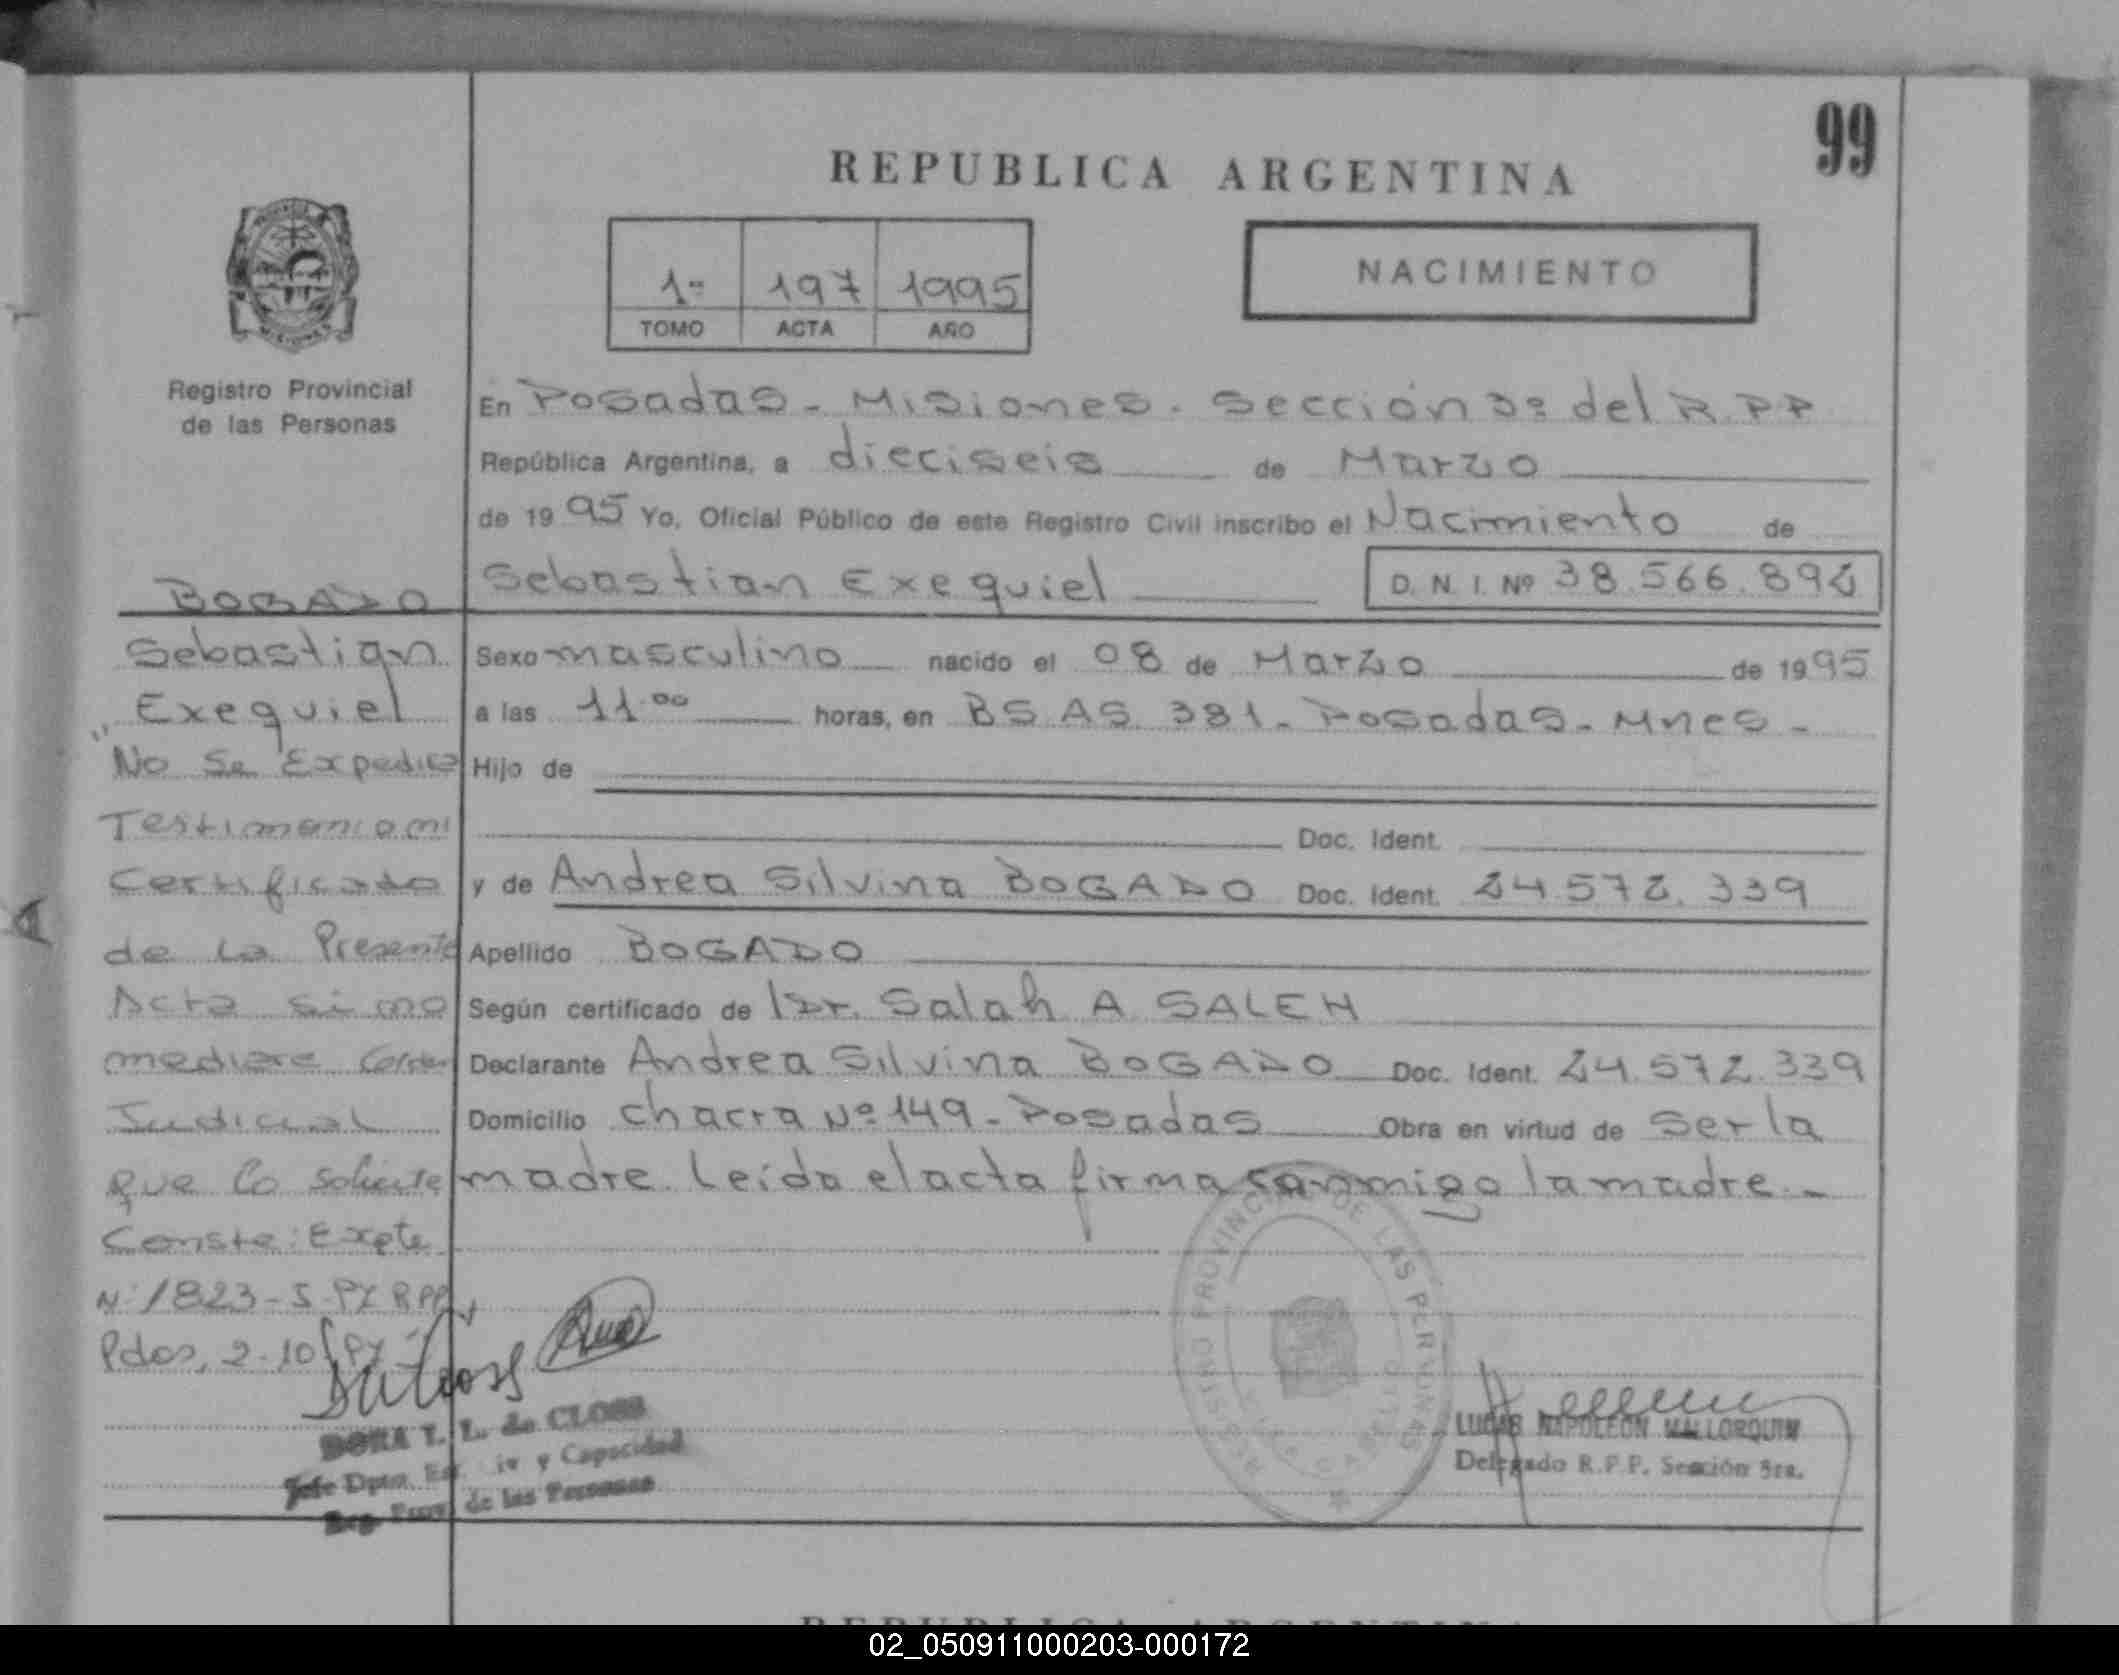 99
REPUBLICA ARGENTINA
1º 197 1995
TOMO ACTA AÑO
NACIMIENTO
Registro Provincial
de las Personas
En Posadas - Misiones. Sección 3º del R.P.P
República Argentina, a dieciseis de Marzo
de 1995 Yo, Oficial Público de este Registro Civil inscribo el Nacimiento de
Sebastian Exequiel D.N.I. Nº 38.566.892
Sexo masculino nacido el 08 de Marzo de 1995
a las 11.00 horas, en BS.AS. 381 - Posadas - Mnes -
Hijo de
Doc. Ident.
y de Andrea Silvina BOGADO Doc. Ident. 24.572.339
Apellido BOGADO
Según certificado de Dr. Salah A. SALEH
Declarante Andrea Silvina BOGADO Doc. Ident. 24.572.339
Domicilio chacra Nº 149 - Posadas Obra en virtud de Ser la
madre. Leída el acta firma conmigo la madre. -
BOGADO
Sebastian
Exequiel
No Se Expedira
Testimonio ni
Certificado
de la Presente
Acta si no
mediare Orden
Judicial
que lo solicite
Conste: Expte
Nº 1823-S-
Pdas, 2-10-
DORA T. L. de CLOSS
Jefe Dpto. y Capacidad
Reg. Prov. de las Personas
REGISTRO PROVINCIAL DE LAS PERSONAS
LUCAS NAPOLEON MALLORQUIN
Delegado R.P.P. Sección 3ra.
REPUBLICA ARGENTINA
02_050911000203-000172